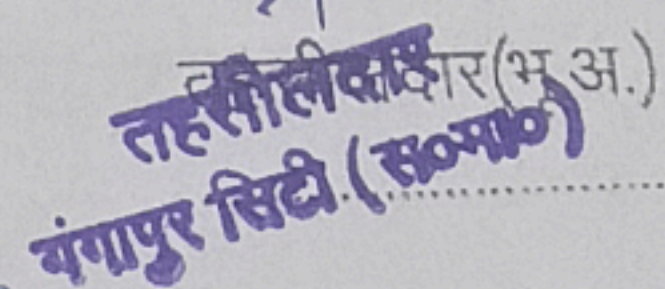 तहसीलदार (भू.अ.)
तहसीलदार
गंगापुर सिटी (स०मा०)